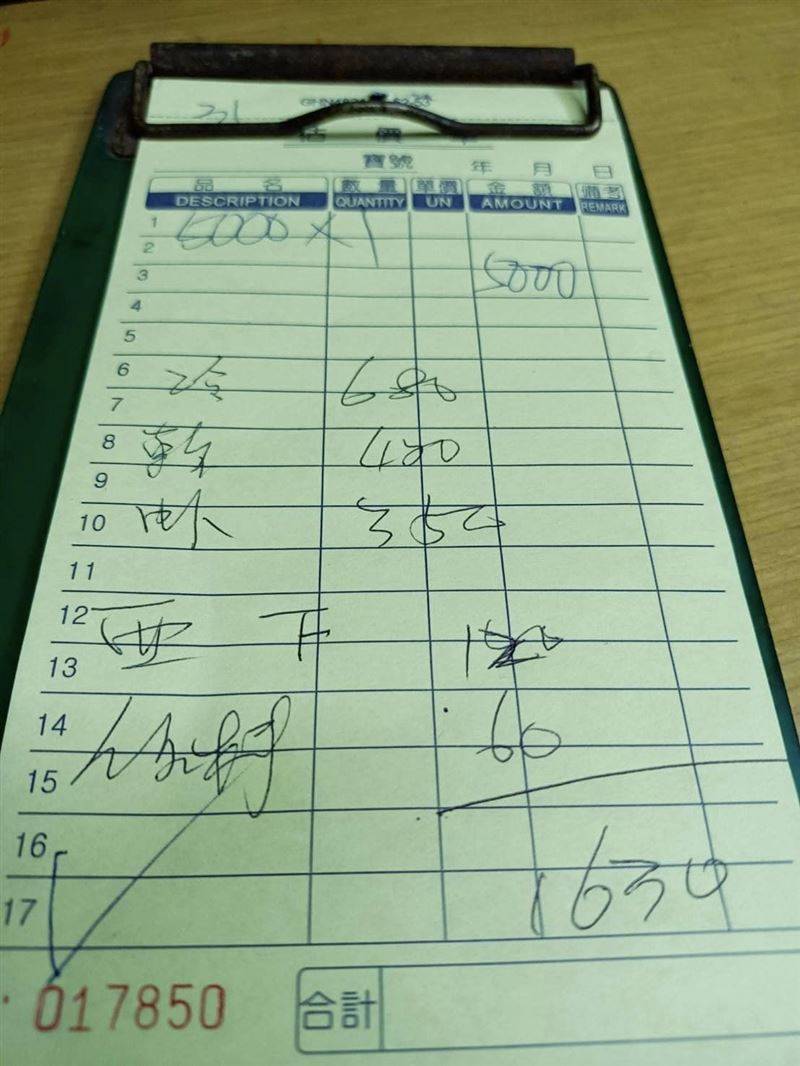 估價單
寶號 年 月 日
品名 數量 單價 金額 備考
DESCRIPTION QUANTITY UN AMOUNT REMARK
1 5000 × 1
2
3 5000
4
5
6 冷 680
7
8 420
9
10 350
11
12 西 下
13 120
14 60
15
16 1630
17
017850 合計